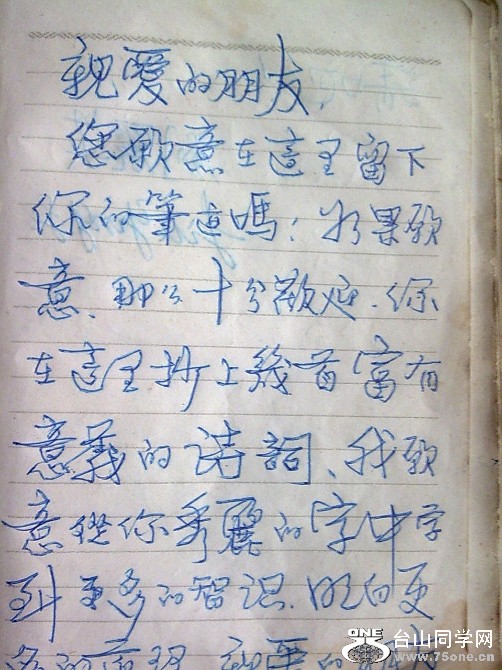 親愛的朋友
您愿意在這里留下
你的筆迹嗎！如果愿
意、那么十分歡迎.你
在這里抄上幾首富有
意義的诗詞、我愿
意從你秀麗的字中学
到更多的智识.明白更
多的
台山同学网
www.75one.cn
ONE